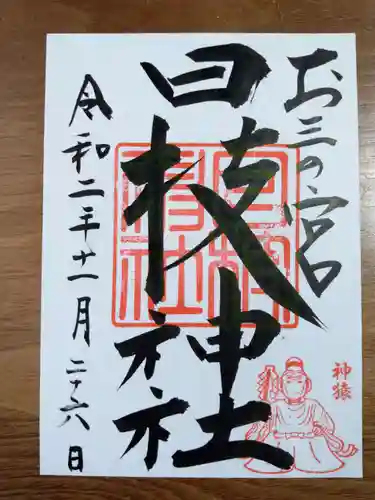 お三の宮
日枝神社
令和二年十一月二十六日
神猿
日枝神社